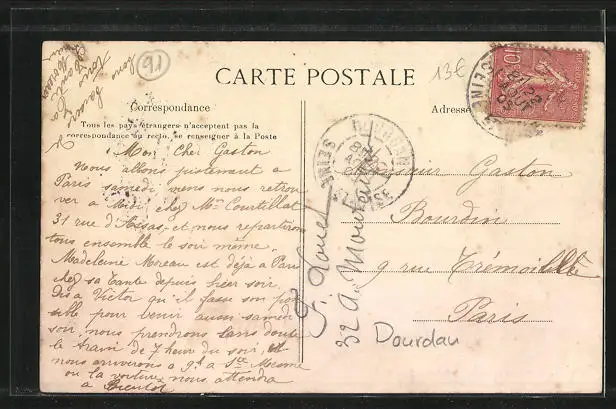 91
13€
CARTE POSTALE
Correspondance
Adresse
Tous les pays étrangers n'acceptent pas la
correspondance au recto, se renseigner à la Poste
Mon Cher Gaston
Nous allons justement a
Paris samedi, viens nous retrou
ver a Midi chez Mme Courtillat
31 rue d'Assas, et nous repartirons
tous ensemble le soir même.
Madeleine Moreau est déjà a Paris
chez sa tante depuis hier soir,
Dis a Victor qu'il fasse son pos
sible pour venir aussi samedi
soir, nous prendrons sans doute
le train de 7 heure du soir, et
nous arriverons a 9h a Ste Mesme
ou la voiture nous attendra
a Bientôt
Monsieur Gaston
Bourdin
9 rue Trémoille
Paris
Dourdan
DOURDAN
SEINE